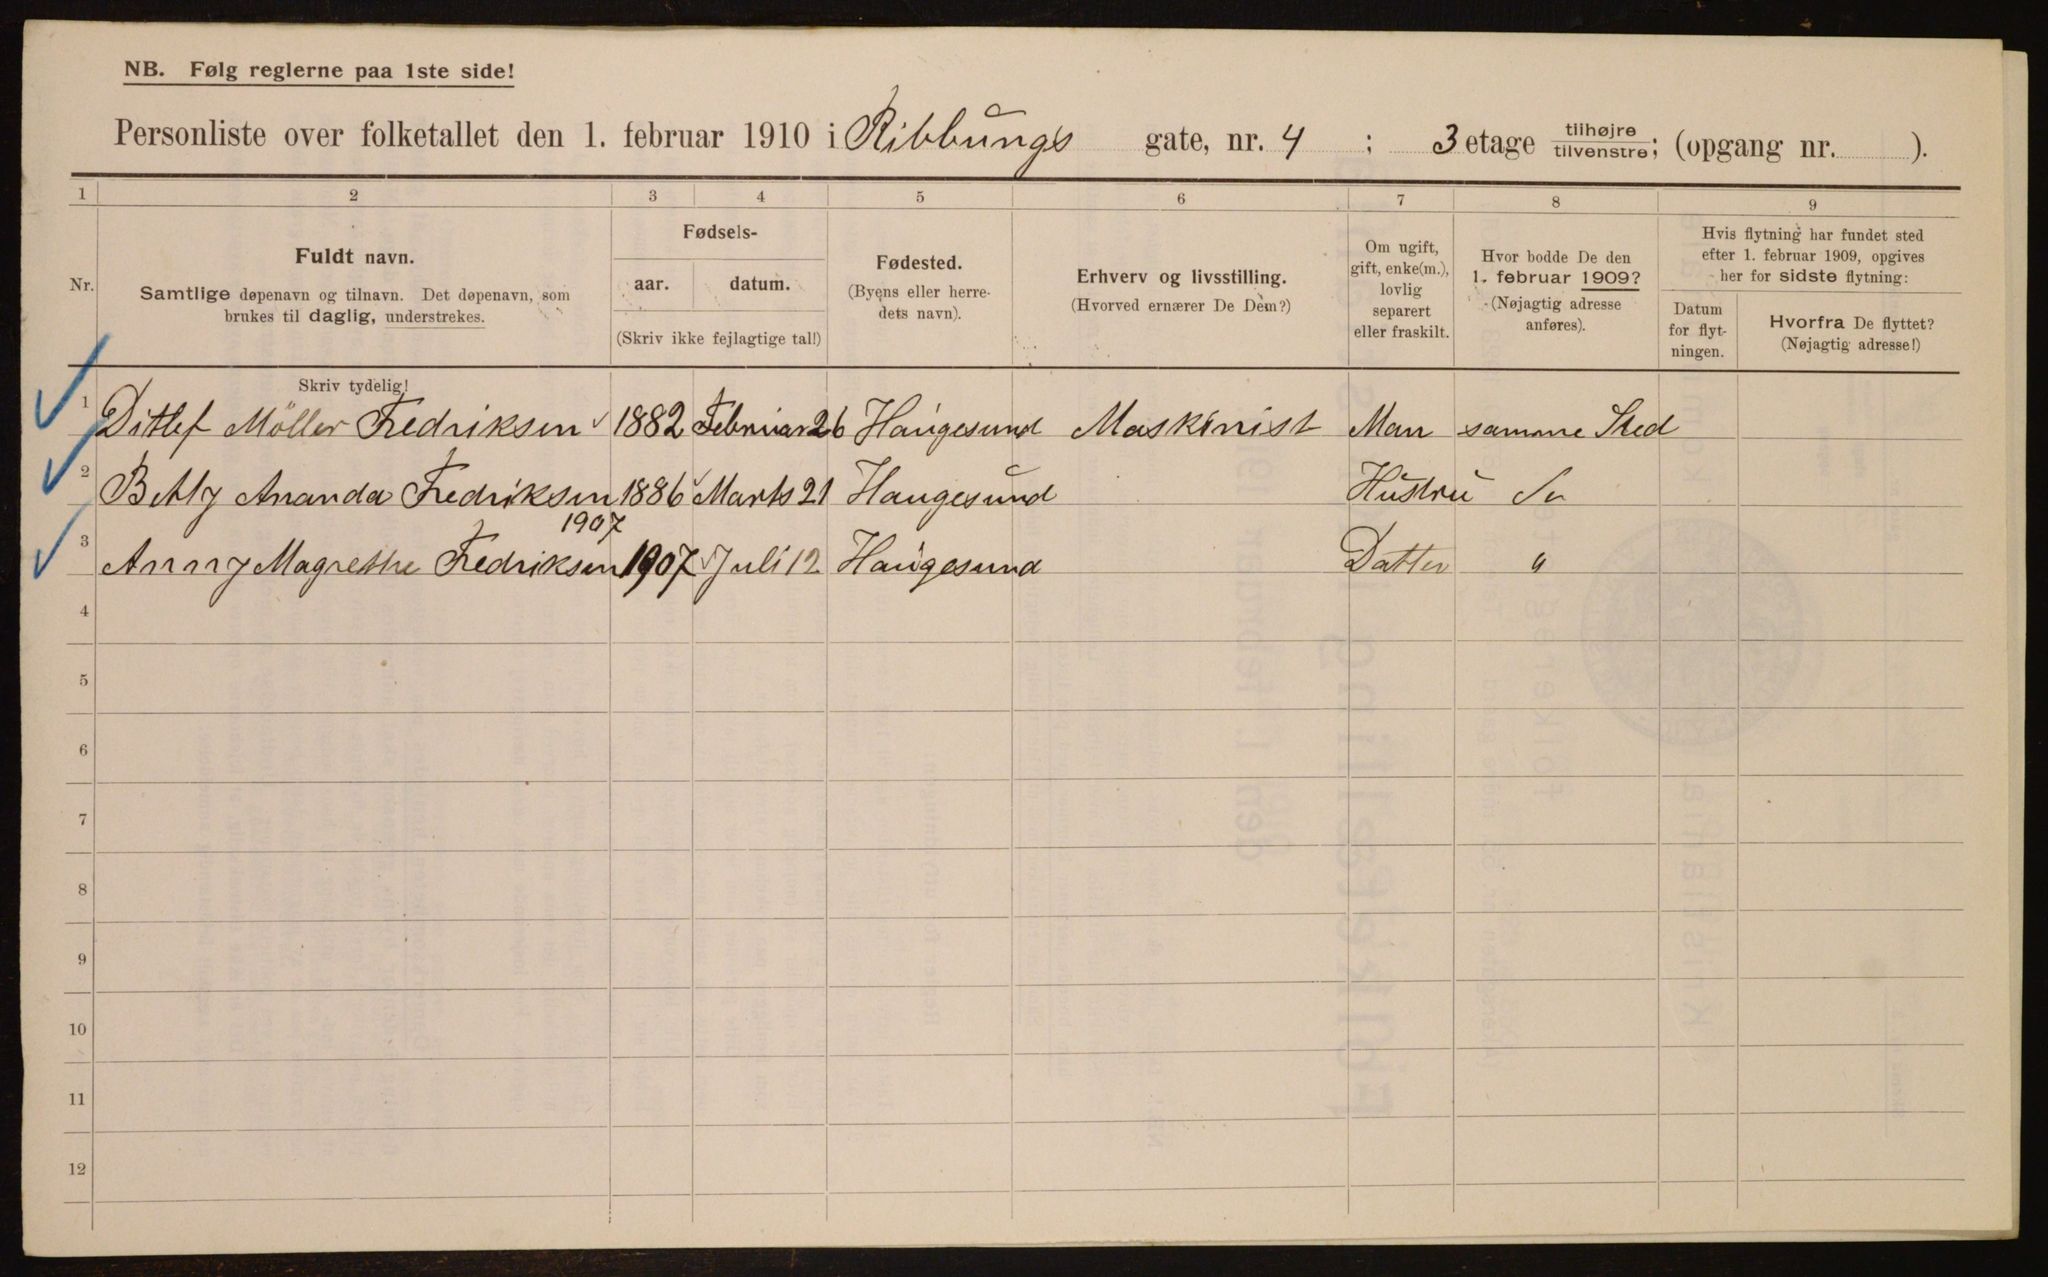 NB. Følg reglerne paa 1ste side!
Personliste over folketallet den 1. februar 1910 i Ribbungs gate, nr. 4 ; 3 etage tilhøjre/tilvenstre; (opgang nr. ).
1 2 3 4 5 6 7 8 9
Nr.
Fuldt navn.
Samtlige døpenavn og tilnavn. Det døpenavn, som
brukes til daglig, understrekes.
Fødsels-
aar. datum.
(Skriv ikke fejlagtige tal!)
Fødested.
(Byens eller herre-
dets navn).
Erhverv og livsstilling.
(Hvorved ernærer De Dem?)
Om ugift,
gift, enke(m.),
lovlig
separert
eller fraskilt.
Hvor bodde De den
1. februar 1909?
(Nøjagtig adresse
anføres).
Hvis flytning har fundet sted
efter 1. februar 1909, opgives
her for sidste flytning:
Datum
for flyt-
ningen.
Hvorfra De flyttet?
(Nøjagtig adresse!)
Skriv tydelig!
1 Ditlef Möller Fredriksen 1882 Februar 26 Haugesund Maskinist Man samme Sted
2 Betty Ananda Fredriksen 1886 Marts 21 Haugesund Hustru
1907
3 Anny Magrethe Fredriksen 1907 Juli 12 Haugesund Datter "
4
5
6
7
8
9
10
11
12